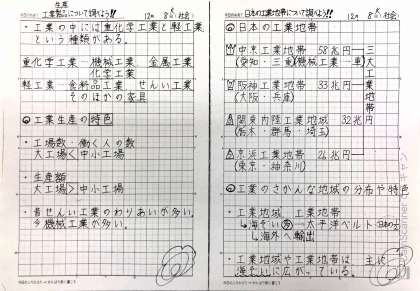 生産
工業製品について調べよう!! 12月 8日(社会)
・工業の中には重化学工業と軽工業
という種類がある。
重化学工業―機械工業 金属工業
化学工業
軽工業―食料品工業 せんい工業
そのほかの家具
◎工業生産の特色
・工場数・働く人の数
大工場<中小工場
・生産額
大工場>中小工場
・昔せんい工業のわりあいが多い。
今機械工業が多い。
日本の工業地帯について調べよう!! 12月 8日(社会)
◎日本の工業地帯
中京工業地帯 58兆円
(愛知・三重)(機械工業―車)
三大工業地帯
阪神工業地帯 33兆円
(大阪・兵庫)
関東内陸工業地域 32兆円
(栃木・群馬・埼玉)
京浜工業地帯 26兆円
(東京・神奈川)
◎工業のさかんな地域の分布や特色
・工業地域 工業地帯
→海ぞい 太平洋ベルト
→海外へ輸出
・工業地域や工業地帯は 主に
海ぞいに広がっている。